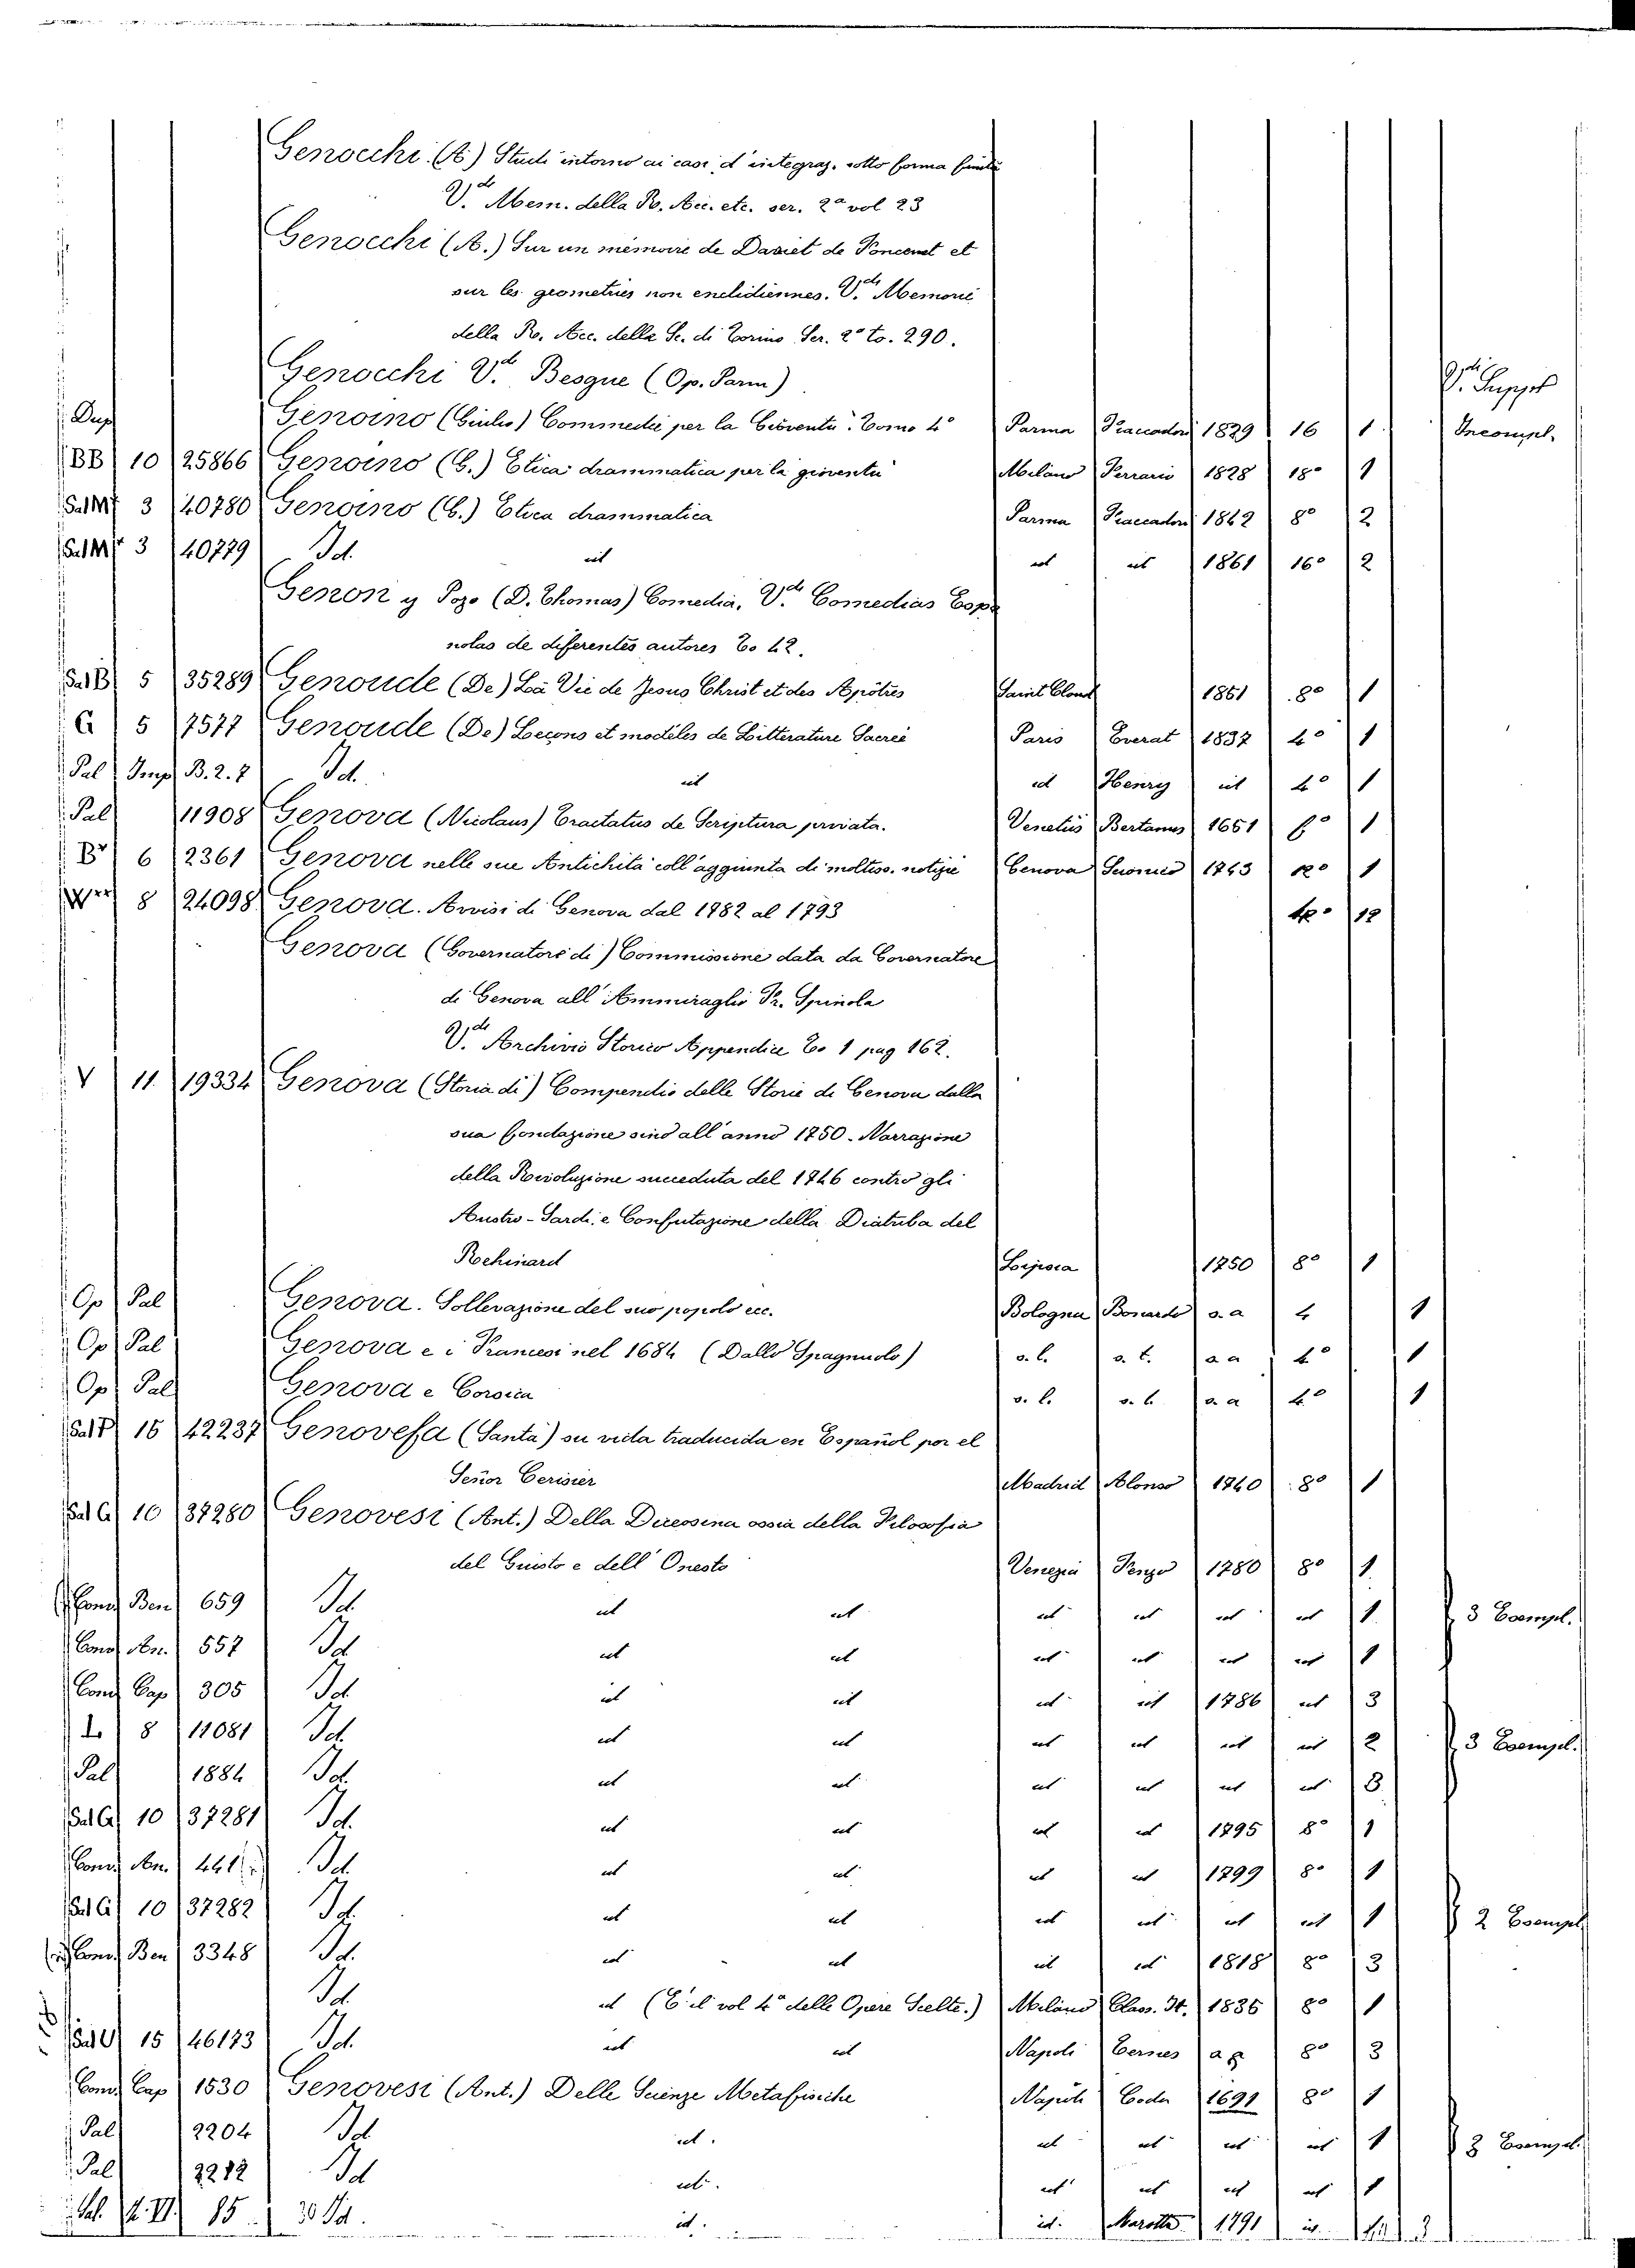 Genocchi (A.) Studi intorno ai casi d'integraz. sotto forma finita
V.de Mem. della R. Acc. etc. ser. 2a vol 23
Genocchi (A.) Sur un mémoire de Daviet de Foncenet et
sur les geometries non euclidiennes. V.de Memorie
della R. Acc. della Sc. di Torino Ser. 2a to. 290.
Genocchi V.de Besgue (Op. Parm) V.di Suppl
Dup Genoino (Giulio) Commedie per la Gioventù. Tomo 4o Parma Fiaccadori 1829 16 1 Incompl.
BB 10 25866 Genoino (G.) Etica drammatica per la gioventù Milano Ferrario 1828 18o 1
Sal M 3 40780 Genoino (G.) Etica drammatica Parma Fiaccadori 1842 8o 2
Sal M 3 40779 Id. ut ut ut 1861 16o 2
Genon y Pozo (D. Thomas) Comedia, V.de Comedias Espa
nolas de diferentes autores To 42.
Sal B 5 35289 Genoude (De) La Vie de Jesus Christ et des Apôtres Saint Cloud 1861 8o 1
G 5 7577 Genoude (De) Leçons et modèles de Litterature Sacrée Paris Everat 1837 4o 1
Pal Imp B. 2. 7 Id. ut ut Henry ut 4o 1
Pal 11908 Genova (Nicolaus) Tractatus de Scriptura privata. Venetiis Bertanus 1651 fo 1
6 2361 Genova nelle sue Antichità coll'aggiunta di moltiss. notizie Genova 1
8 24098 Genova. Avvisi di Genova dal 1782 al 1793 4o 12
Genova (Governatore di) Commissione data da Governatore
di Genova all'Ammiraglio Fr. Spinola
V.de Archivio Storico Appendice To 1 pag 162.
V 11. 19334 Genova (Storia di) Compendio delle Storie di Genova dalla
sua fondazione sino all'anno 1750. Narrazione
della Rivoluzione succeduta del 1746 contro gli
Austro-Sardi, e Confutazione della Diatriba del
Rochinard Leipsia 1750 8o 1
Op Pal Genova. Sollevazione del suo popolo ecc. Bologna s. a 4 1
Op Pal Genova e i Francesi nel 1684 (Dallo Spagnuolo) s. l. s. t. a a 4o 1
Op Pal Genova e Corsica s. l. s. t. s. a 4o 1
Sal P 15 42237 Genovefa (Santa) su vida traducida en Español por el
Señor Cerisier Madrid Alonso 1740 8o 1
Sal G 10 37280 Genovesi (Ant.) Della Diceosina ossia della Filosofia
del Giusto e dell'Onesto Venezia 1780 8o 1.
Cons Ben 659 Id ut ut ut ut ut ut 1. 3 Esempl.
Cons An. 557 Id ut ut ut ut ut ut 1
Cons Cap 305 Id. ut ut ut ut 1786 ut 3
L 8 11081 Id. ut ut ut ut ut ut 2 3 Esempl.
Pal 1884 Id ut ut ut ut ut ut 3.
Sal G 10 37281 Id. ut ut ut ut 1795 8o 1
Cons An. 441 Id. ut ut ut ut 1799 8o 1
Sal G 10 37282 Id. ut ut ut ut ut ut 1 2 Esempl
Cons Ben 3348 Id. ut ut ut ut 1818 8o 3
Id. ut (È il vol 4o delle Opere Scelte.) Milano Class. It. 1836 8o 1
15 46173 Id. ut ut Napoli 8o 3
Cons Cap 1530 Genovesi (Ant.) Delle Scienze Metafisiche Napoli 1691 8o 1
Pal 2204 Id ut. ut ut ut ut 1 3 Esempl.
Pal 2212 Id ut. ut ut ut ut 1
Pal. 85 Id. id. id. Marotta 1791